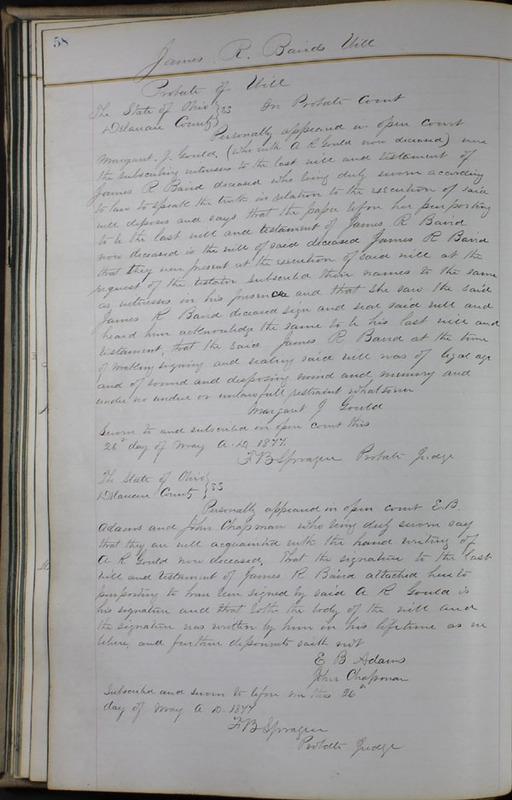 58
James R. Bairds Will
Probate of Will
The State of Ohio } SS In Probate Court
Delaware County
Personally appeared in open court
Margaret. J. Gould, (who with A R Gould now deceased) were
the subscribing witnesses to the last will and testament of
James R Baird deceased who being duly sworn according
to law to speak the truth in relation to the execution of said
will deposes and says that the paper before her purporting
to be the last will and testament of James R Baird
now deceased is the will of said deceased James R Baird
that they were present at the execution of said will at the
request of the testator subscribed their names to the same
as witnesses in his presence and that she saw the said
James R Baird deceased sign and seal said will and
heard him acknowledge the same to be his last will and
testament, that the said James R Baird at the time
of making signing and sealing said will was of legal age
and of sound and disposing mind and memory and
under no undue or unlawful restraint whatsoever
Margaret J Gould
Sworn to and subscribed in open court this
26" day of May A.D. 1877
F B Sprague Probate Judge
The State of Ohio } SS
Delaware County
Personally appeared in open court E. B.
Adams and John Chapman who being duly sworn say
that they are well acquainted with the hand writing of
A R Gould now deceased, That the signature to the last
will and testament of James R Baird attached hereto
purporting to have been signed by said A R Gould is
his signature and that both the body of the will and
the signature was written by him in his lifetime as we
believe, and further deponents saith not
E B Adams
John Chapman
Subscribed and sworn to before me this 26"
day of May A D. 1877
F B Sprague
Probate Judge